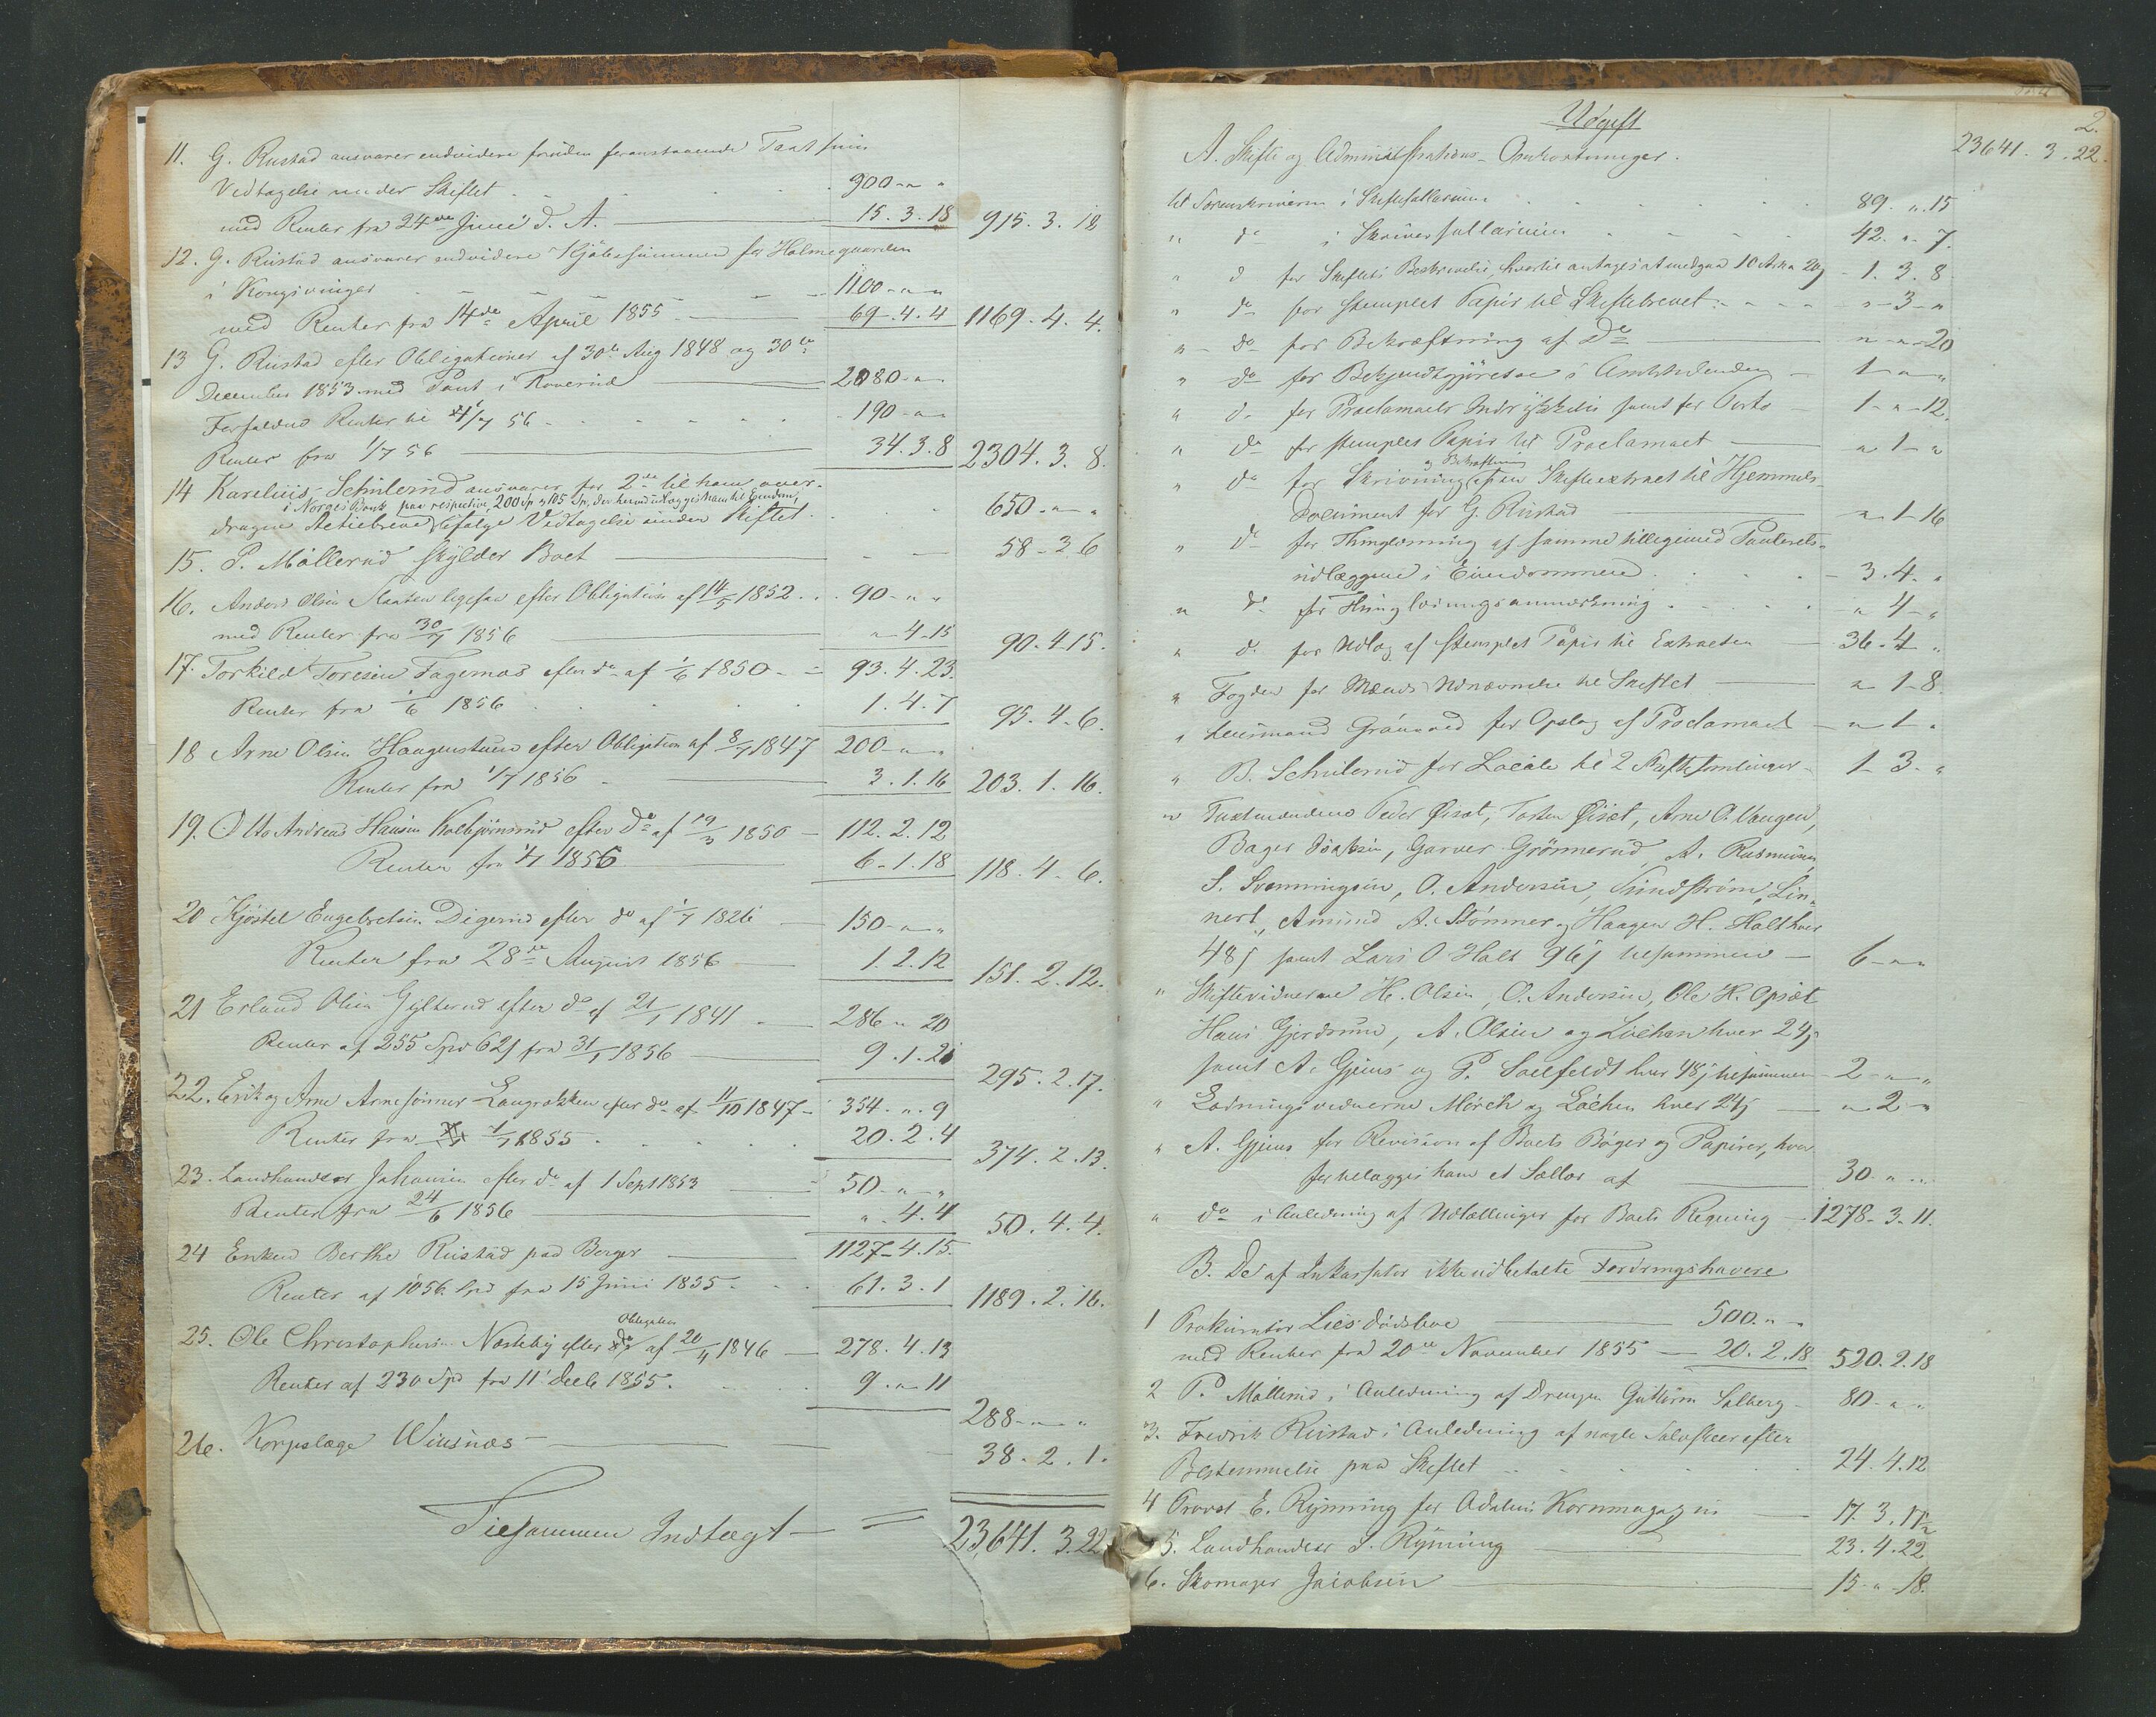 11. G. Rustad ansvarer endvidere foruden foranstaaende Taxt sin
Vedtagelse under Skiftet 900 - " - "
med Renter fra 24de Juni d. A. 15. 3. 18 915. 3. 18
12. G. Rustad ansvarer endvidere Kjöbesummen for Holmegaarden
i Kongsvinger 1100 - " - "
med Renter fra 14de April 1855 69 - 4. 4 1169. 4. 4.
13 G. Rustad efter Obligationer af 30te Aug 1848 og 30te
December 1853 med Pant i Roverud 2080 - " -
Forfaldne Renter til 1/7 56 190 - " -
Renter fra 1/7 56 34. 3. 8 2304. 3. 8.
14 Karelius Schulerud ansvarer for 2de til ham over-
i Norges Bank paa respective 200 Sp og 105 Sp, der herved udlægges ham til Eiendom,
dragne Actiebreve ifølge Vedtagelse under Skiftet 650 - " - "
15. P. Möllerud skylder Boet 58 - 3 6
16. Anders Olsen Staaten ligesaa efter Obligation af 14/5 1852 90 - " - "
med Renter fra 30/7 1856 " - 4. 15 90. 4 15.
17. Torkild Toresen Fagernæs efter do af 1/6 1850 93. 4. 23.
Renter fra 1/6 1856 1. 4. 7 95. 4. 6.
18 Arne Olsen Haugenstuen efter Obligation af 8/7 1847 200 - " - "
Renter fra 1/7 1856 3. 1. 16 203. 1. 16.
19. Otto Andreas Hansen Kolbjörnsrud efter do af 19/3 1850 112. 2. 12
Renter fra 1/7 1856 6 - 1. 18 118. 4. 6.
20 Kjöstel Engebretsen Digerud efter do af 1/7 1826 150 - " - "
Renter fra 28de August 1856 1. 2. 12 151. 2. 12.
21 Erland Olsen Gylterud efter do af 21/1 1841 286 " 20
Renter af 255 Spd 62 s fra 31/1 1856 9. 1. 21 295. 2. 17.
22. Erik og Arne Arnesönner Langrækken efter do af 11/10 1847 354. " 9
Renter fra 1/7 1855 20. 2. 4 374. 2. 13.
23. Landhandler Johansen efter do af 1 Sept 1853 50 - " - "
Renter fra 24/6 1856 " . 4. 4 50. 4. 4.
24 Enken Berthe Rustad paa Berger 1127 - 4. 15.
Renter af 1056 Spd fra 15 Juni 1855 61. 3. 1 1189. 2. 16.
Obligation
25. Ole Christophersen Næsteby efter af 20/4 1846 278. 4. 13
Renter af 230 Spd fra 11 Decb 1855. 9. " 11
288 - " - "
26. Korpslæge Wiisnæs 38. 2. 1.
Tilsammen Indtægt 23,641. 3. 22
2.
Udgift
A. Skifte og Administrations-Omkostninger. 23641. 3. 22.
til Sorenskriveren i Skiftesallarium 89. " . 15
" do i Skriversallarium 42. " . 7.
" do for Skiftets Beskrivelse, hvortil antages at medgaa 10 Ark a 20 s 1. 3. 8
" do for stemplet Papir til Skiftebrevet " - 3 - "
" do for Bekræftning af Do " - " - 20
" do for Bekjendtgjörelse i Amtstidenden 1 - " - "
" do for Proclamaets Indrykkelse samt for Porto 1 - " - 12.
" do for stemplet Papir til Proclamaet " 1 - "
og Bekræftning
" do for Skrivning af en Skifteextract til Hjemmels-
Document for G. Rustad " - 1 - 16
" do for Thinglæsning af samme tilligemed Panterets-
udlæggene i Eiendommene 3. 4. "
" do for Thinglæsningsanmærkning " 4 - "
" do for Udlæg af stemplet Papir til Extracten 36. 4 "
" Fogden for Mænds Udnævnelse til Skiftet " 1 - 8
" Lensmand Grönvold for Opslag af Proclamaet " - 1 - "
" B. Schulerud for Locale til 2 Skiftesamlinger 1 - 3. "
" Taxtmændene Peder Öiset, Torsten Öiset, Arne O. Vangen,
Bager Isaksen, Garver Grönnerud, A. Rasmusen,
S. Svenningsen, O. Andersen, Sundström, Lin-
nert, Amund A. Stömner og Haagen H. Holt hver
48 s samt Lars O Holt 96 s tilsammen 6 - " - "
" Skiftevidnerne H. Olsen, O. Andersen, Ole H. Opsæt
Hans Gjerdrum, A. Olsen og Löchen hver 24 s
samt A. Gjems og P. Soelfeldt hver 48 s tilsammen 2 - " - "
" Lodningsvidnerne Mörch og Löchen hver 24 s " - 2 - "
" A. Gjems for Revision af Boets Böger og Papirer, hvor
for tillægges ham et Sallar af 30 - " - "
" do i Anledning af Udtællinger for Boets Regning 1278 - 3 - 11.
B. De af Inkassator ikke udbetalte Fordringshavere
1 Prokurator Lies Dödsbo 500. " -
med Renter fra 20de November 1855 20. 2. 18 520. 2. 18
2 P. Möllerud i Anledning af Drengen Guttorm Solberg 80 - " - "
3. Fredrik Rustad i Anledning af nogle Sölvskeer efter
Bestemmelse paa Skiftet 24. 4. 12
4 Provst E. Rynning for Aadalens Kornmagazin 17. 3. 17 1/2
5. Landhandler S. Rynning 23. 4. 22
6. Skomager Jacobsen 15 - " - 18.